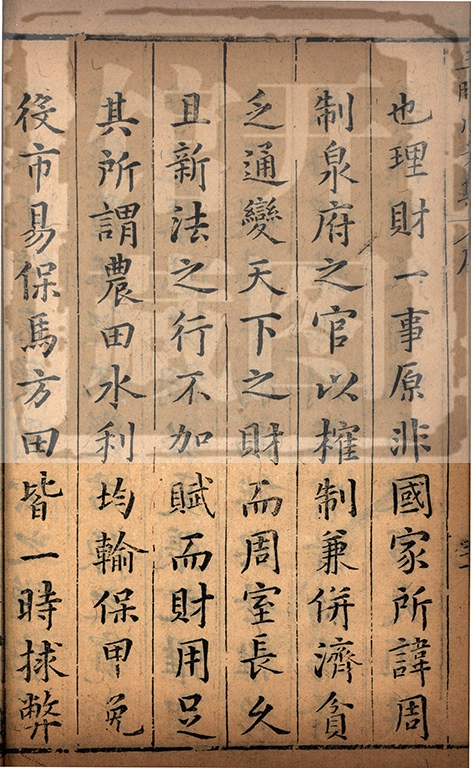 也理財一事原非國家所諱周
制泉府之官以榷制兼併濟貧
乏通變天下之財而周室長久
且新法之行不加賦而財用足
其所謂農田水利均輸保甲免
役市易保馬方田皆一時捄弊